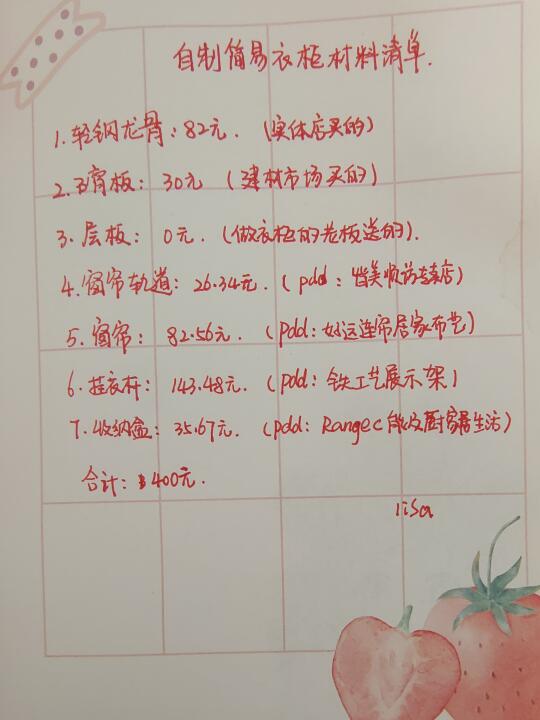 自制简易衣柜材料清单.
1. 轻钢龙骨: 82元. (实体店买的)
2. 石膏板: 30元 (建材市场买的)
3. 层板: 0元. (做衣柜的老板送的).
4. 窗帘轨道: 26.34元. (pdd: 美顺访专卖店)
5. 窗帘: 82.56元. (pdd: 好运连帘居家布艺)
6. 挂衣杆: 143.48元. (pdd: 铁工艺展示架)
7. 收纳盒: 35.67元. (pdd: Rangec 厨家居生活)
合计: 400元.
lisa